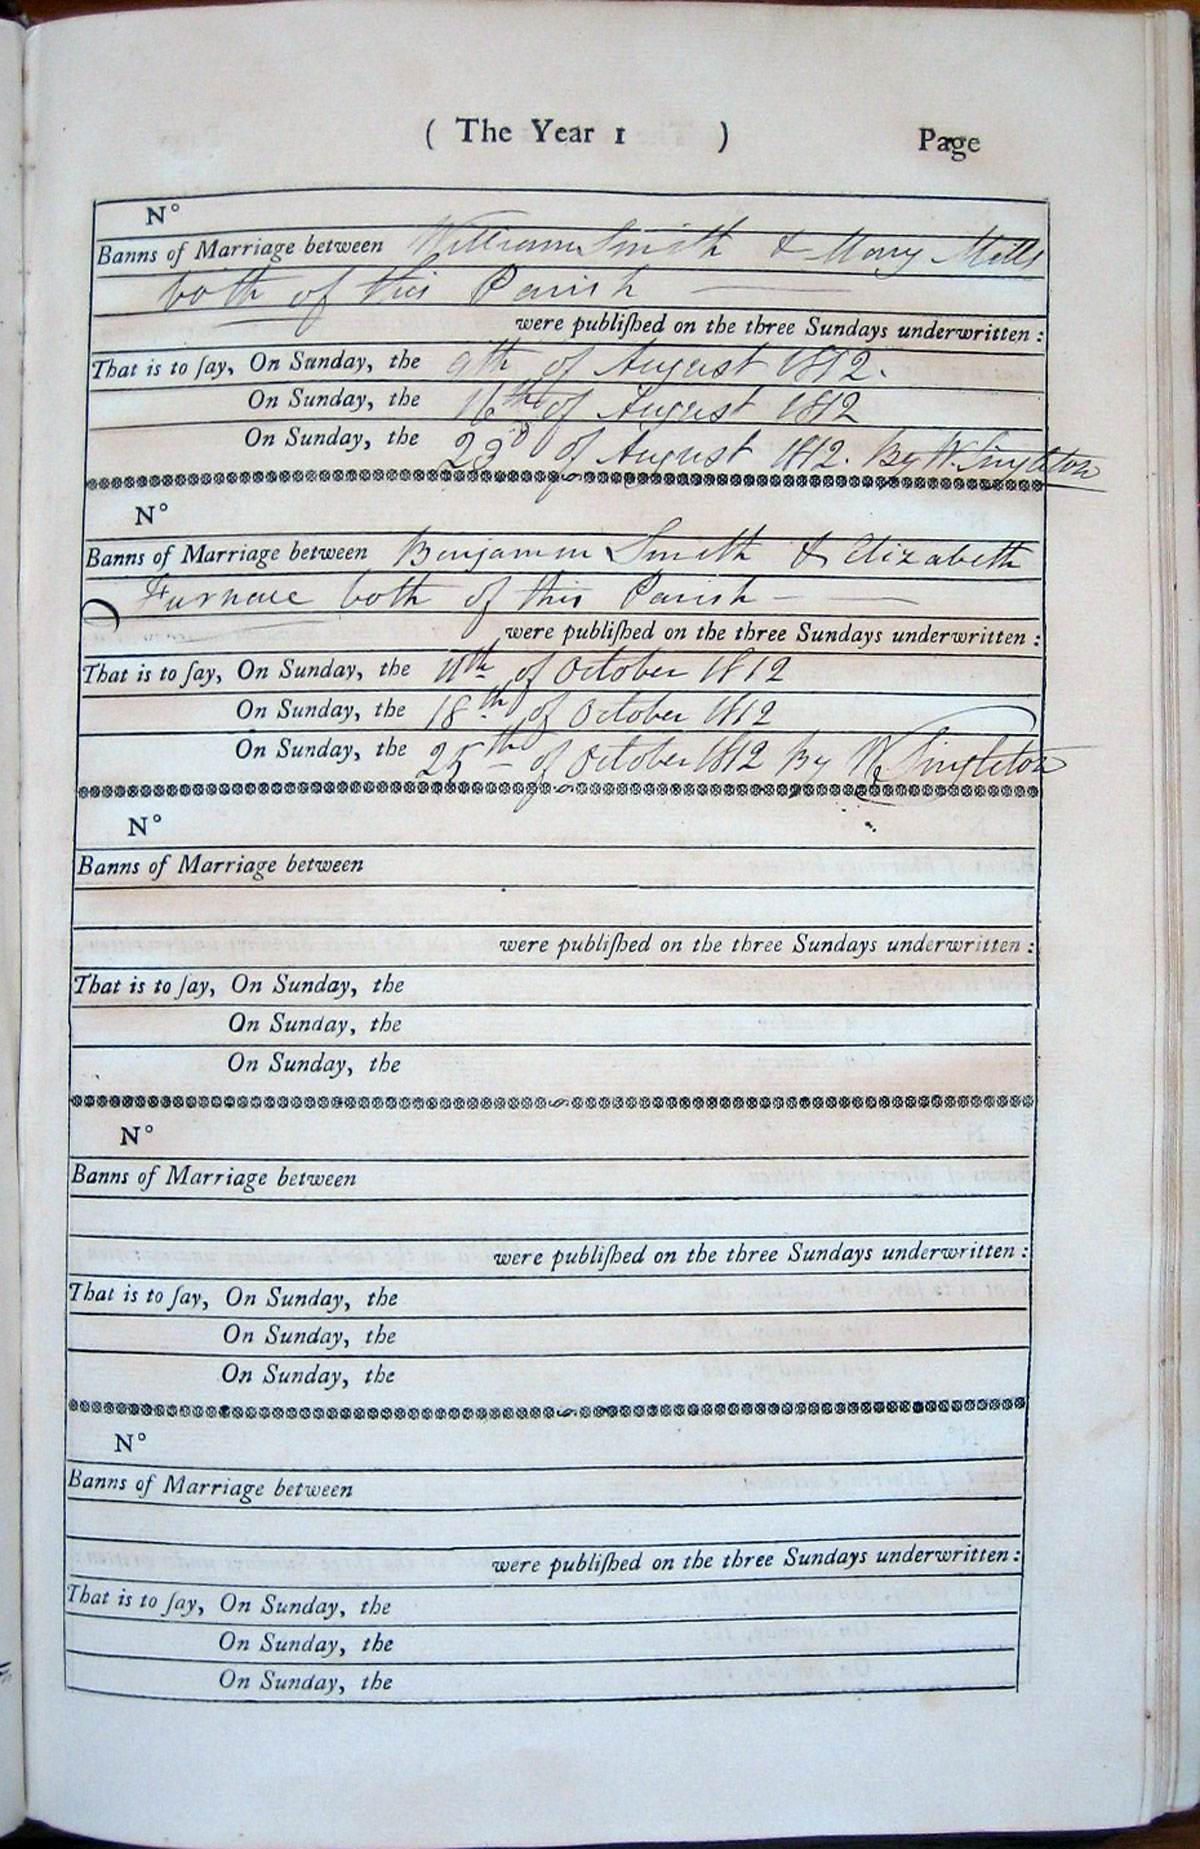 ( The Year 1 ) Page
N°
Banns of Marriage between William Smith & Mary Mills
both of this Parish
were publiſhed on the three Sundays underwritten :
That is to ſay, On Sunday, the 9th of August 1812.
On Sunday, the 16th of August 1812
On Sunday, the 23d of August 1812. By W. Singleton
N°
Banns of Marriage between Benjamin Smith & Elizabeth
Furnace both of this Parish
were publiſhed on the three Sundays underwritten :
That is to ſay, On Sunday, the 11th of October 1812
On Sunday, the 18th of October 1812
On Sunday, the 25th of October 1812 By W Singleton
N°
Banns of Marriage between
were publiſhed on the three Sundays underwritten :
That is to ſay, On Sunday, the
On Sunday, the
On Sunday, the
N°
Banns of Marriage between
were publiſhed on the three Sundays underwritten :
That is to ſay, On Sunday, the
On Sunday, the
On Sunday, the
N°
Banns of Marriage between
were publiſhed on the three Sundays underwritten :
That is to ſay, On Sunday, the
On Sunday, the
On Sunday, the